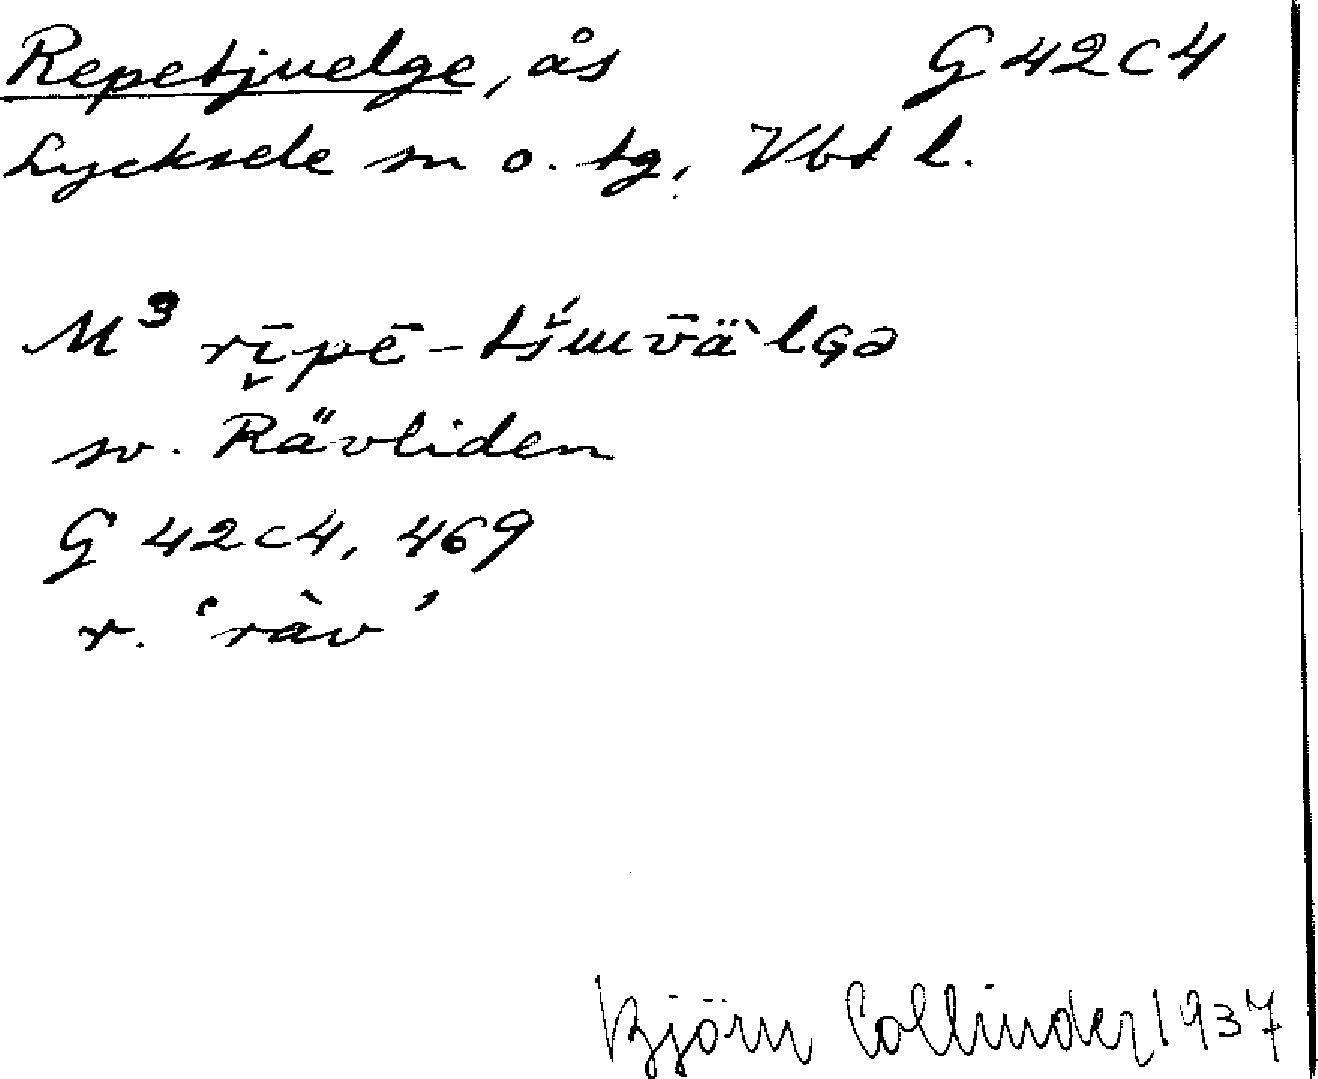 Repetjuelge, ås G 42 C 4
Lycksele sn o. tg, Vbt l.
M³ rīpē-tśɯv̄ä̀lGə
sv. Rävliden
G 42 C 4, 469
r. 'räv'
Björn Collinder 1937